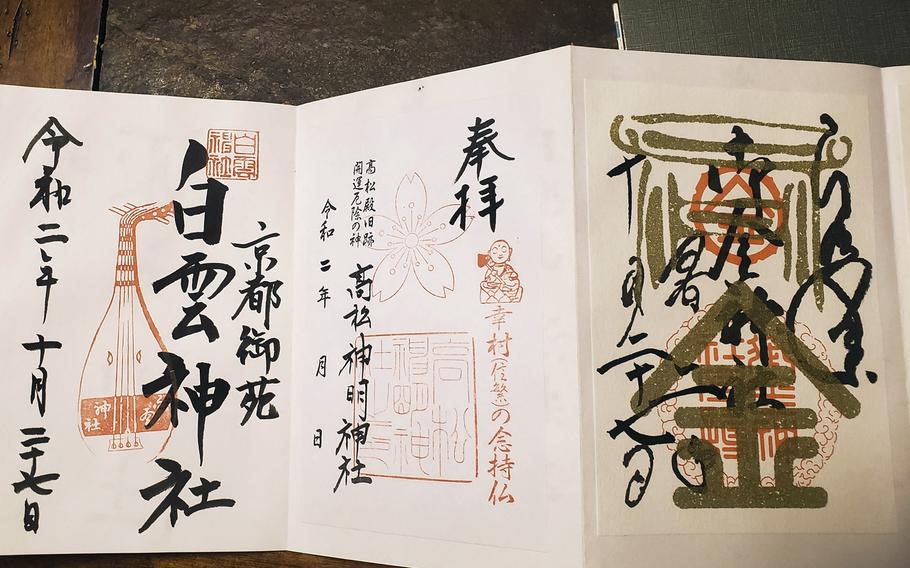 京都御苑
白雲神社
白雲神社
令和二年十月二十七日
奉拝
幸村(信繁)の念持仏
高松殿旧跡
開運厄除の神
高松神明神社
令和 二年 月 日
御金神社
十月二十七日
金